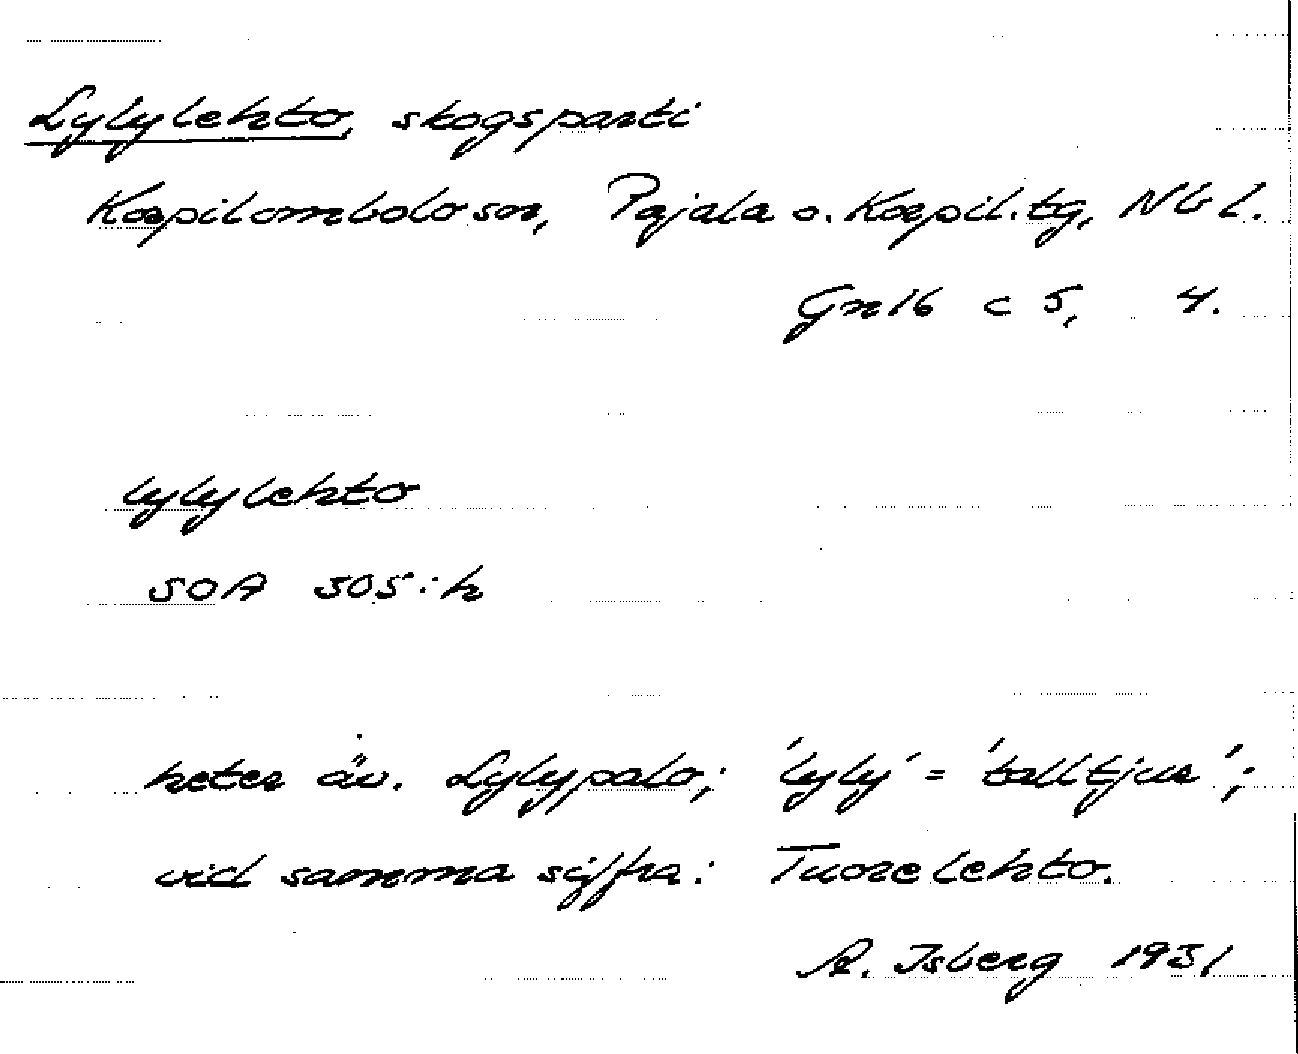 Lylylehto, skogsparti
Korpilombolo sn, Pajala o. Korpil. tg, Nb l.
Gn16 c 5, 4.
lylylehto
SOA 305:h
heter äv. Lylypalo; 'lyly' = 'talltjur';
vid samma siffra: Tuorelehto.
R. Isberg 1931